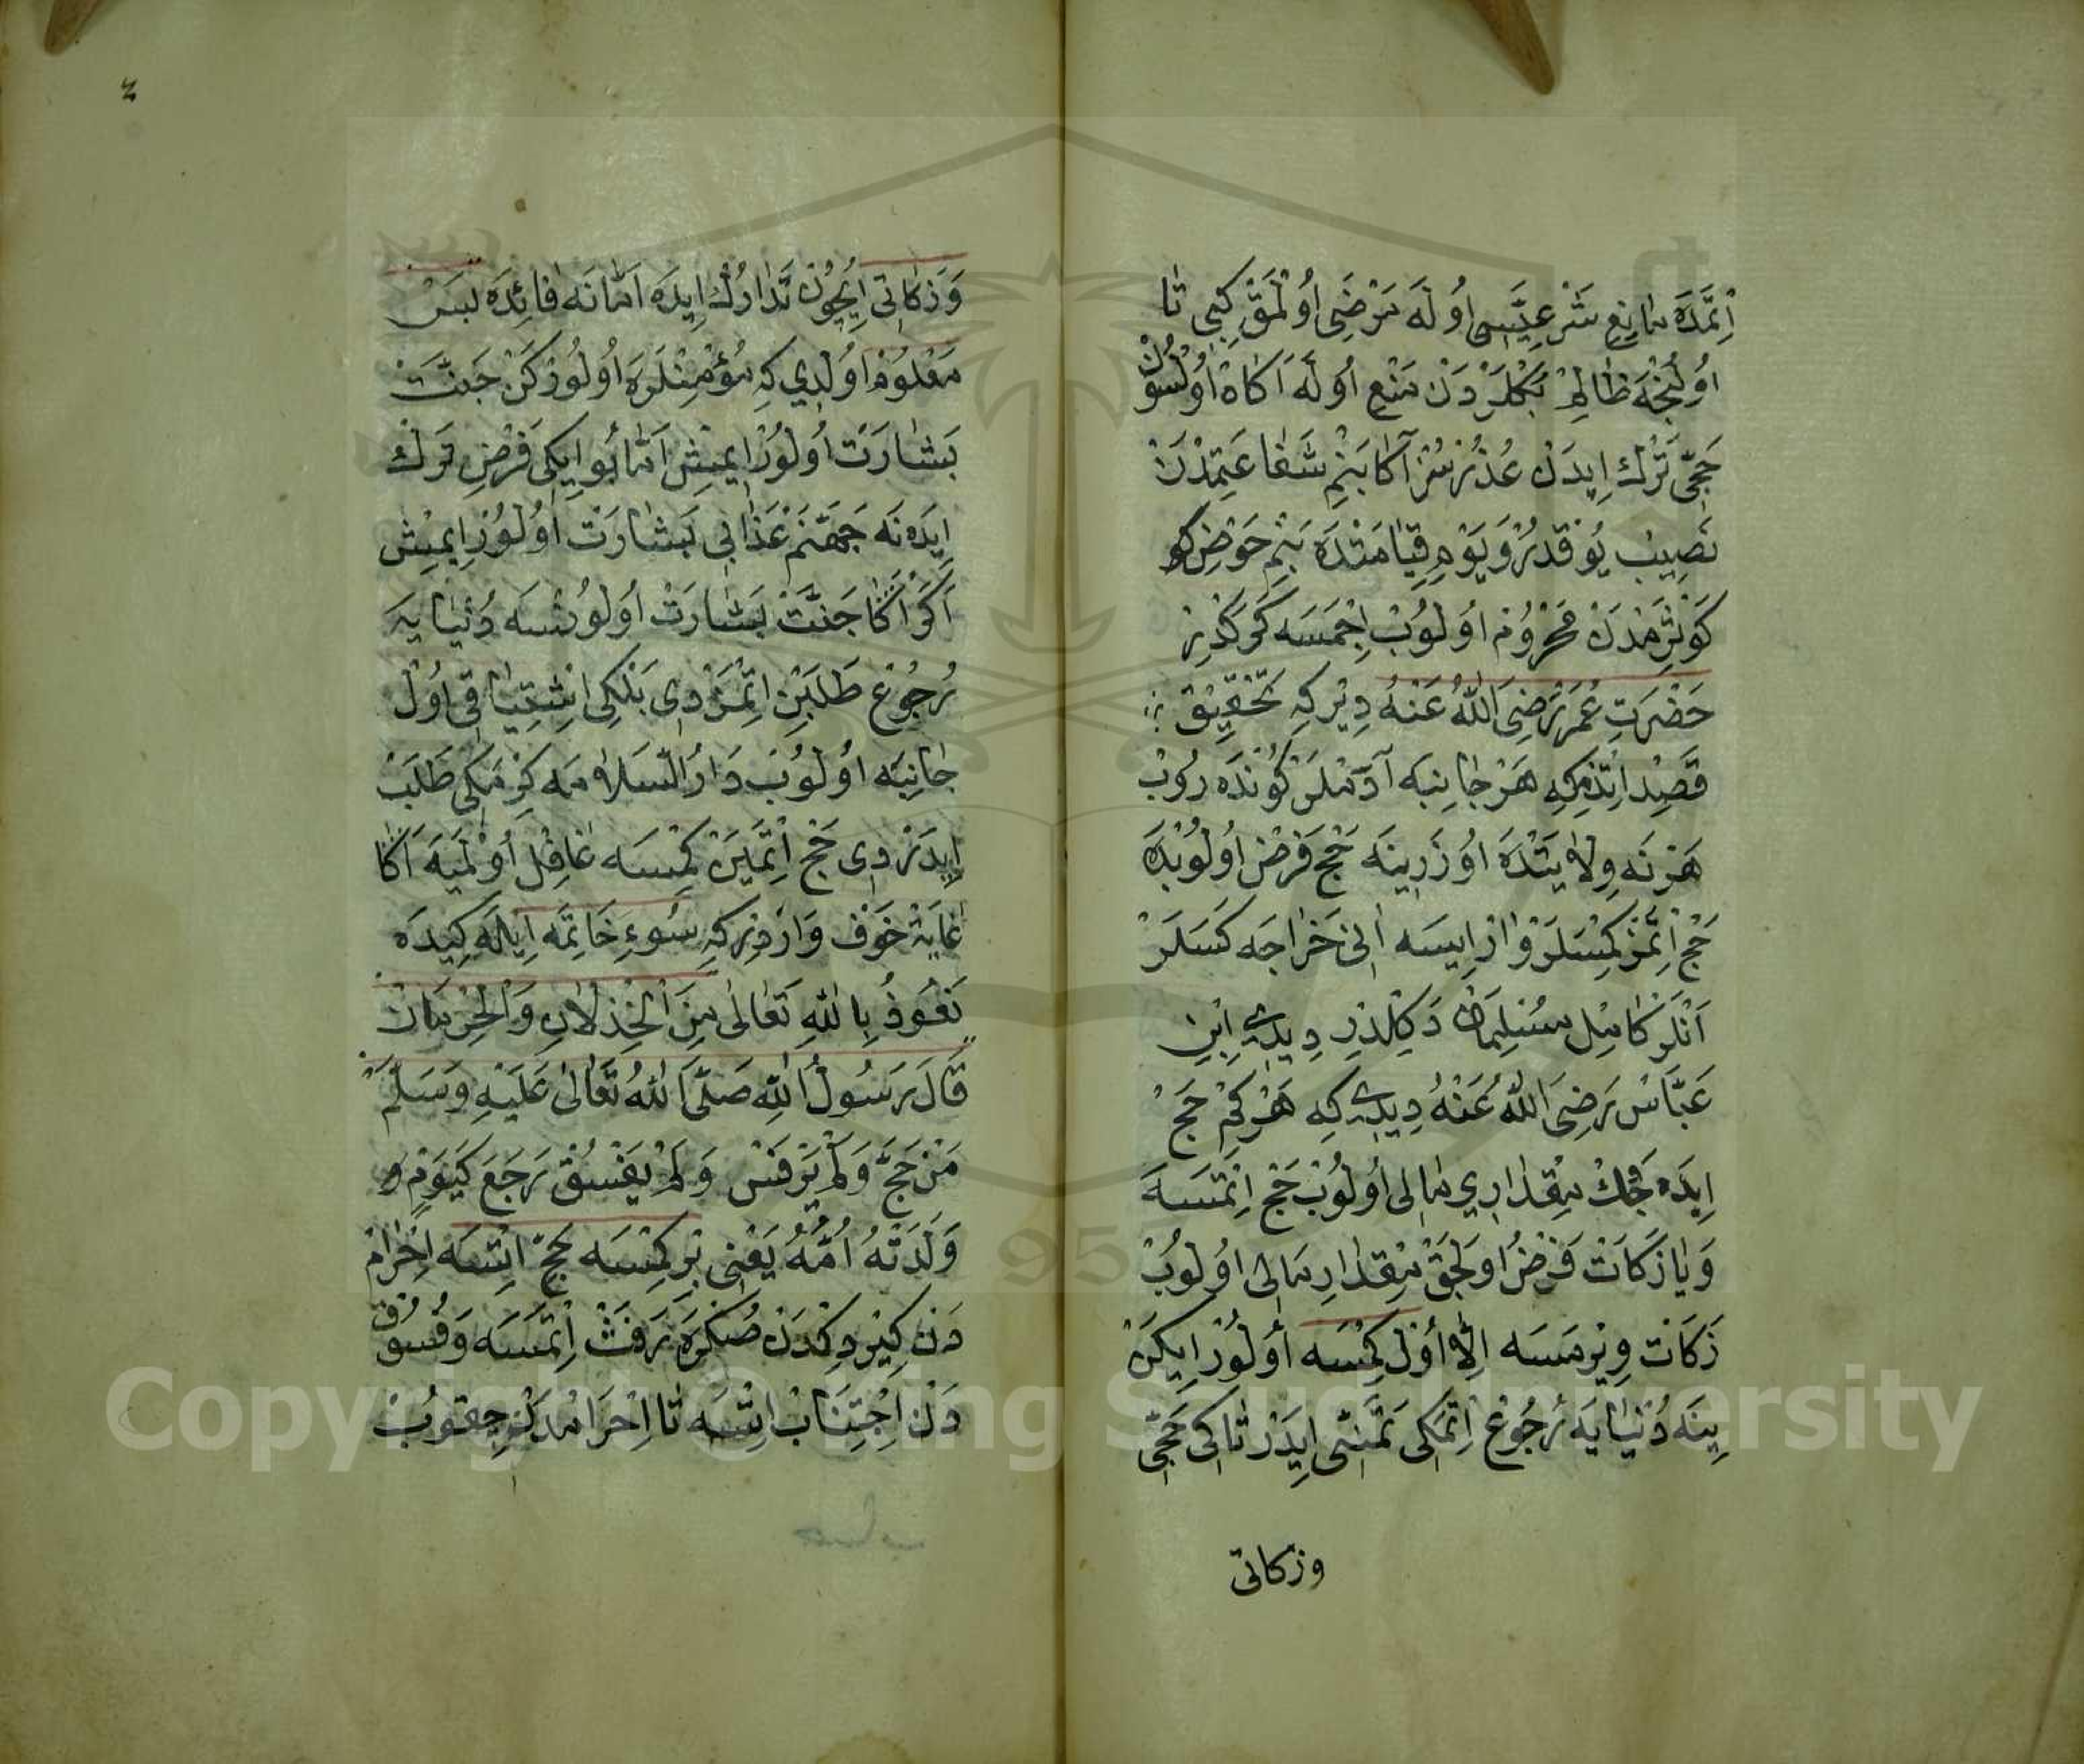 اِتْمَدَه مَانِعِ شَرْعِيَّسِى اُولَه مَرَضِى اُولْمَقْ كِبِى تَا
اوُلُنْجَه ظَالِمْ بَكْلَرْدَنْ مَنْعِ اوُلَه آكَاهْ اوُلْسُونْ
حَجِّى تَرْك اِيدَنْ عُذْرْسُزْ آكَا بَنِمْ شَفَاعَتِمْدَنْ
نَصِيبْ يُوقْدُرْ وَيَوْمِ قِيَامَتْدَه بَنِمْ حَوْضِ كو
كَوْثَرِمْدَنْ مَحْرُومْ اوُلُوبْ اِچْمَسَه كَرَكْدِرْ
حَضْرَتِ عُمَرْ رَضِىَ اللّٰهُ عَنْهُ دِيرْ كِه تَحْقِيقْ
قَصْد اِتْدِمْكِه هَرْ جَانِبَه آدَمْلَرْ كُونْدَه رُوبْ
هَرْ نَه وِلَايَتْدَه اوُزَرِينَه حَجْ فَرْض اوُلُوبْدَه
حَجْ اِتْمَزْ كِمْسَلَرْ وَارْ اِيسَه اَنِى خَرَاجَه كَسَلَرْ
اَنْلَرْ كَامِل مُسْلِمَانْ دَكِلْدِرْ دِيدِى اِبْنِ
عَبَّاسْ رَضِىَ اللّٰهُ عَنْهُ دِيدِى كِه هَرْ كِمْ حَجْ
اِيدَه جَكْ مِقْدَارِي مَالِى اُولُوبْ حَجْ اِتْمَسَه
وَيَا زَكَاتْ فَرْضْ اوُلَجَقْ مِقْدَارِ مَالِى اوُلُوبْ
زَكَاتْ وِيرْمَسَه اِلَّا اُولْ كِمْسَه اُولُورْ اِيكَنْ
يِنَه دُنْيَايَه رُجُوعْ اِتْمَكِى تَمَنِّى اِيدَرْ تَاكِى حَجِّى
وزكاتى
وَزَكَاتِى اِيچُونْ تَدَارُكْ اِيدَه اَمَّا نَه فَائِدَه پَسْ
مَعْلُومْ اوُلْدِي كِه مُؤْمِنْلَرَه اُولُورْكَنْ جَنَّتْ
بَشَارَتْ اُولُورْ اِيمِشْ اَمَّا بُو اِيكِى فَرْضِ تَرْكْ
اِيدَه نَه جَهَنَّمْ عَذَابِى بَشَارَتْ اوُلُورْ اِيمِشْ
اَكَرْ اَكَا جَنَّتْ بَشَارَتْ اوُلُورْسَه دُنْيَايَه
رُجُوعْ طَلَبِنْ اِتْمَزْدِى بَلْكِى اِشْتِيَاقِى اوُلْ
جَانِبَه اوُلُوبْ دَارُ السَّلَامَه كِرْمَكِى طَلَبْ
اِيدَرْدِى حَجْ اِتْمَيَنْ كِمْسَه غَافِلْ اُولْمَيَه اَكَا
غَايَتْ خَوْف وَارْدِرْ كِه سُوءِ خَاتِمَه اِيلَه كِيدَه
نَعُوذُ بِاللّٰهِ تَعَالٰى مِنَ الْخِذْلَانِ وَالْحِرْمَانْ
قَالَ رَسُولُ اللّٰهِ صَلَّى اللّٰهُ تَعَالٰى عَلَيْهِ وَسَلَّمَ
مَنْ حَجَّ وَلَمْ يَرْفَثْ وَلَمْ يَفْسُقْ رَجَعَ كَيَوْمٍ و
وَلَدَتْهُ اُمُّهُ يَعْنِى بِرْ كِمْسَه حَجّ اِتْسَه اِحْرَامْ
دَنْ كِيرْدِكْدَنْ صُكْرَه رَفَثْ اِتْمَسَه وَفُسُوقْ
دَنْ اِجْتِنَابْ اِتْسَه تَا اِحْرَامْدَنْ چِقُوبْ
Copyright © King Saud University